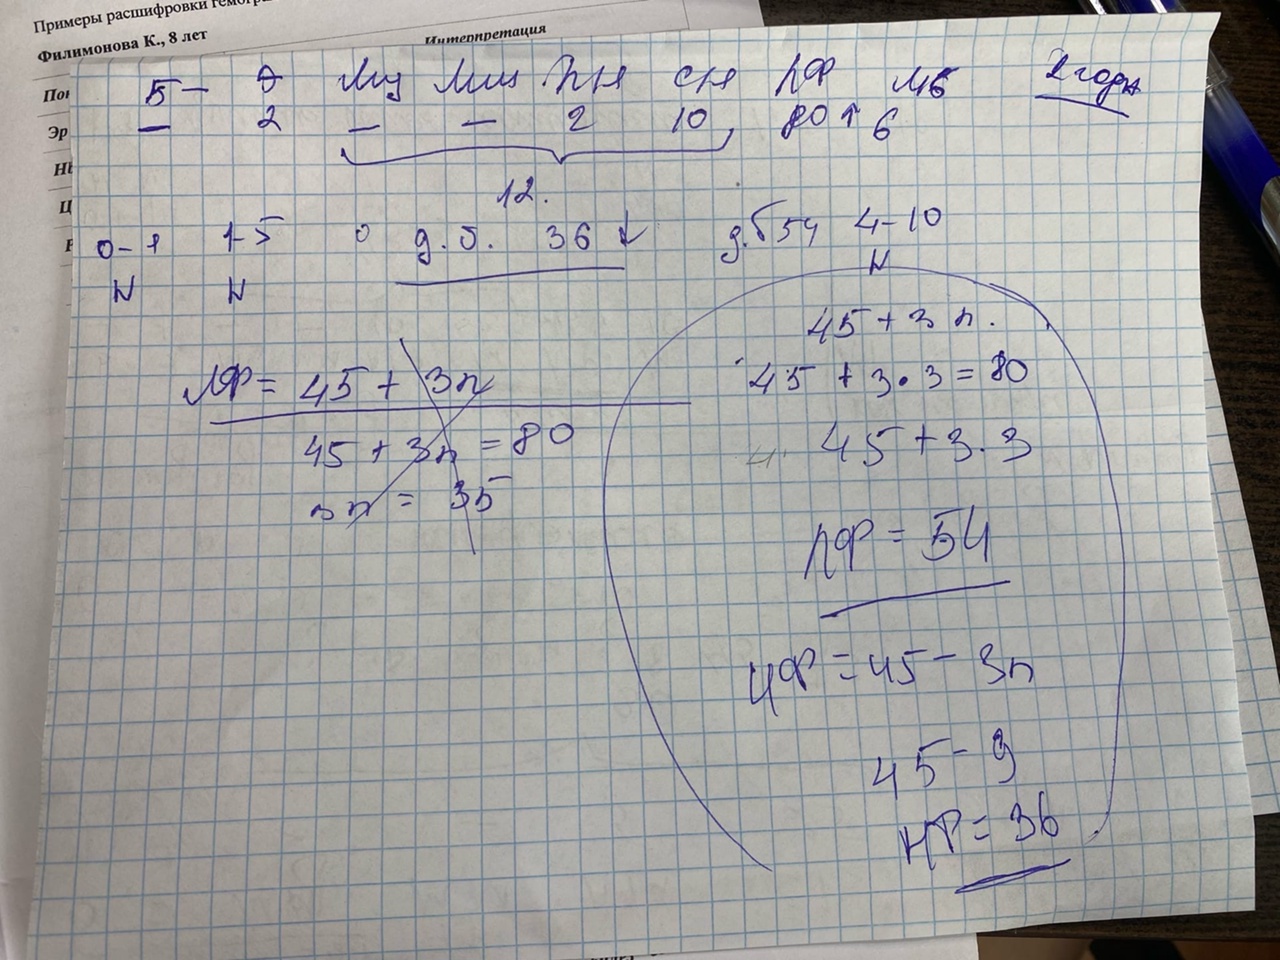 Примеры расшифровки
Филимонова К., 8 лет
Интерпретация
Б – Э Мц Мм Пя Ся ЛФ Мб 2 года
– 2 – – 2 10 80 ↑ 6
12.
0-1 1-5 0 д.б. 36 ↓ д.б 54 4-10
N N N
45 + 3 n.
45 + 3 • 3 = 80
45 + 3 . 3
ЛФ = 54
НФ = 45 – 3n
45 – 9
НФ = 36
ЛФ = 45 + 3n
45 + 3n = 80
3n = 35